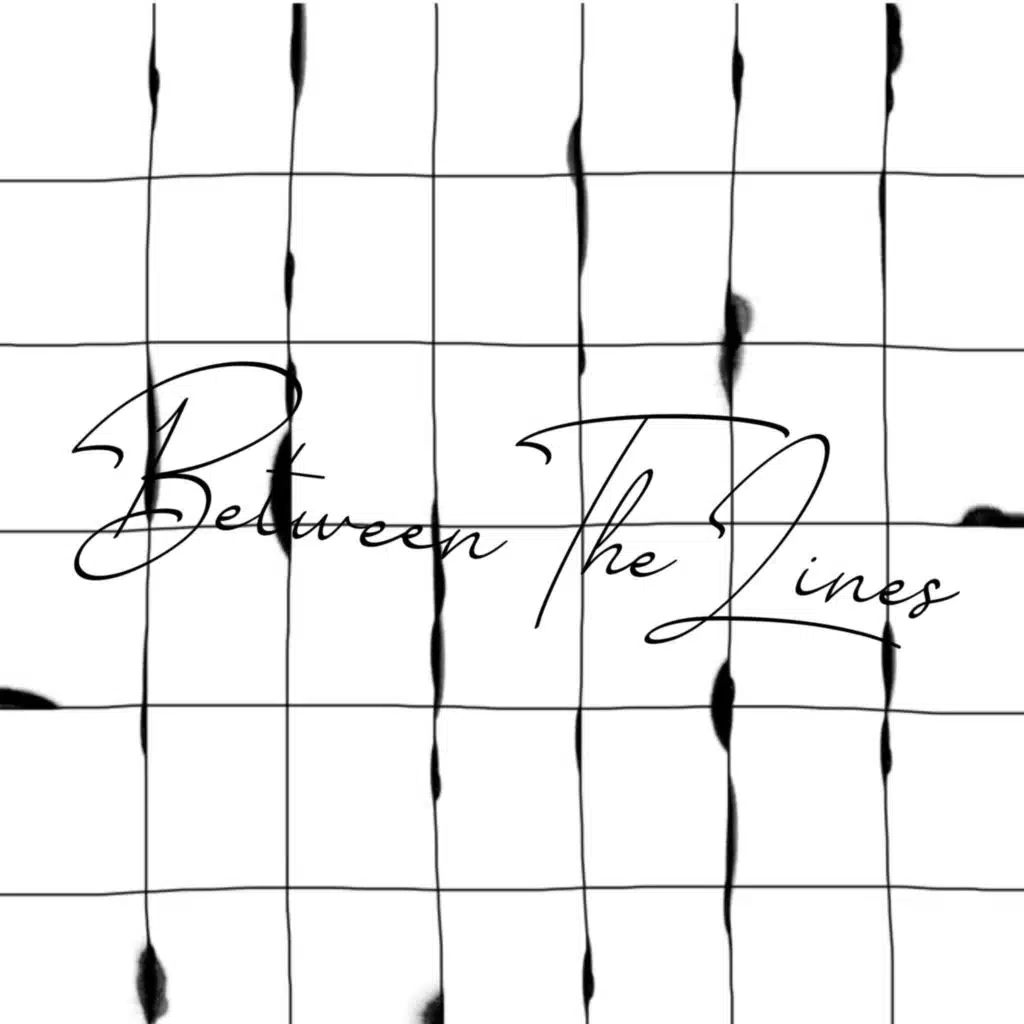 Between The Lines